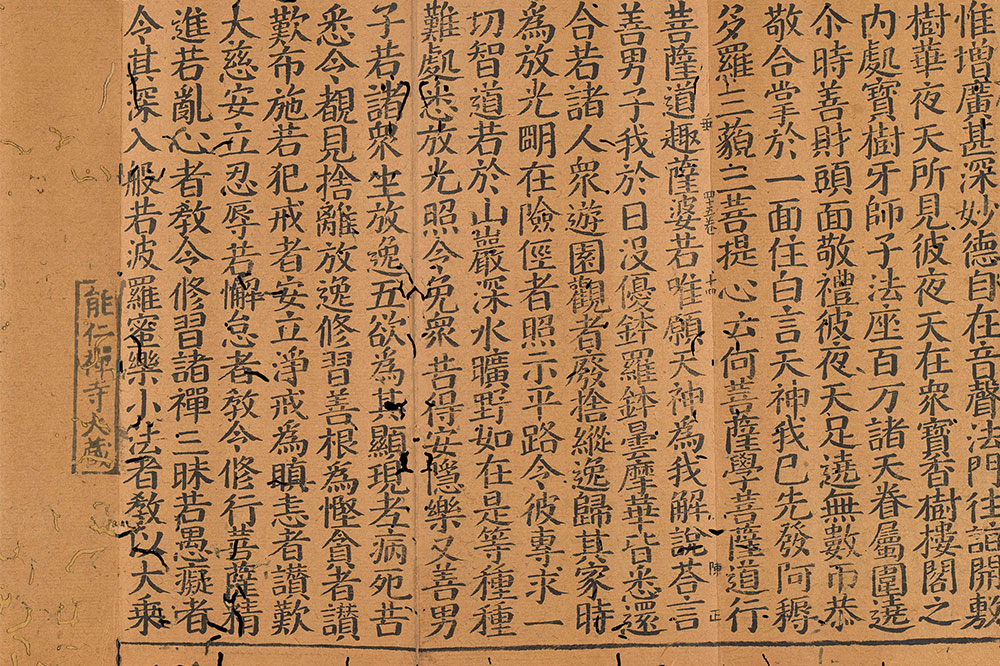 惟增廣甚深妙德自在音聲法門往詣開敷
樹華夜天所見彼夜天在衆寶香樹樓閣之
内處寶樹牙師子法座百万諸天眷屬圍遶
尒時善財頭面敬禮彼夜天足遶無數帀恭
敬合掌於一面住白言天神我已先發阿耨
多羅三藐三菩提心云何菩薩學菩薩道行
垂 四五卷 十四 陳 正
菩薩道趣薩婆若唯願天神為我解說荅言
善男子我於日没優鉢羅鉢曇摩華皆悉還
合若諸人衆遊園觀者廢捨縱逸歸其家時
為放光明在險徑者照示平路令彼專求一
切智道若於山巖深水曠野如在是等種種
難處悉放光照令免衆苦得安隱樂又善男
子若諸衆生放逸五欲為其顯現老病死苦
悉令覩見捨離放逸修習善根為慳貪者讃
歎布施若犯戒者安立淨戒為瞋恚者讃歎
大慈安立忍辱若懈怠者教令修行菩薩精
進若亂心者教令修習諸禪三昧若愚癡者
令其深入般若波羅蜜樂小法者教以大乗
能仁禪寺大藏